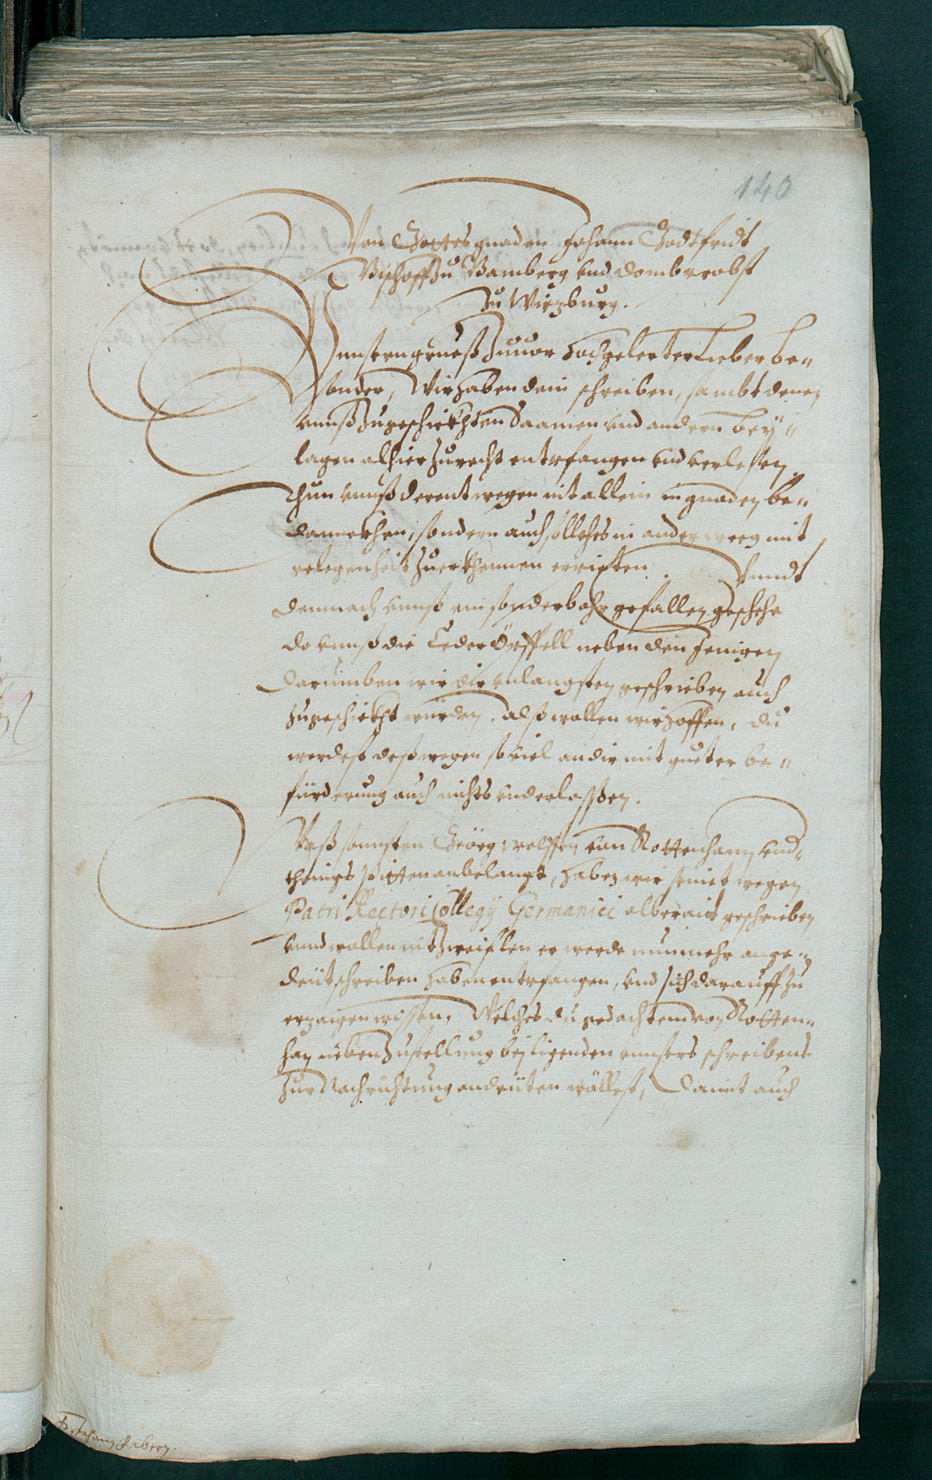 140
Von Gottes gnaden Johann Godtfridt
Bischoff zu Bamberg vnd Dombrobst
zu Würzburg.
Vnnsern grueß zuuor Hochgelerter Lieber be-
sonder, Wir haben dein schreiben, sambt denen
vnnß zugeschickhten Saamen vnd andern bey-
lagen alhier zurecht entpfangen vnd verlesen,
Thun vnnß derentwegen nit allein in gnaden be-
danckhen, sondern auch solliches in ander weeg mit
gelegenheit zuerkhennen erpietten. Vnndt
demnach vnnß ein sonderbahr gefallen geschehe
do vnnß die Ceder Öpffell neben den Jenigen
darumben wir dir vnlangsten geschrieben, auch
zugeschickht würden, Alß wollen wir hoffen, du
werdest deßwegen souiel an dir mit gueter be-
fürderung auch nichts vnderlassen.
Waß sonnsten Geörg Wolffen von Rottenhann vnd-
anbelangt, haben wir seinet wegen
Patri Rectori Collegij Germanici alberait geschrieben
vnnd wollen nit zweifflen er werde nunmehr ange-
deüt schreiben haben entpfangen, vnd sich darauff zu
erzaigen wissen, Welches du gedachtem von Rotten-
han neben zustellung beyligenden vnnsers schreibens
zur Nachrichtung andeüten wöllest, Damit auch
Johann Faberen.